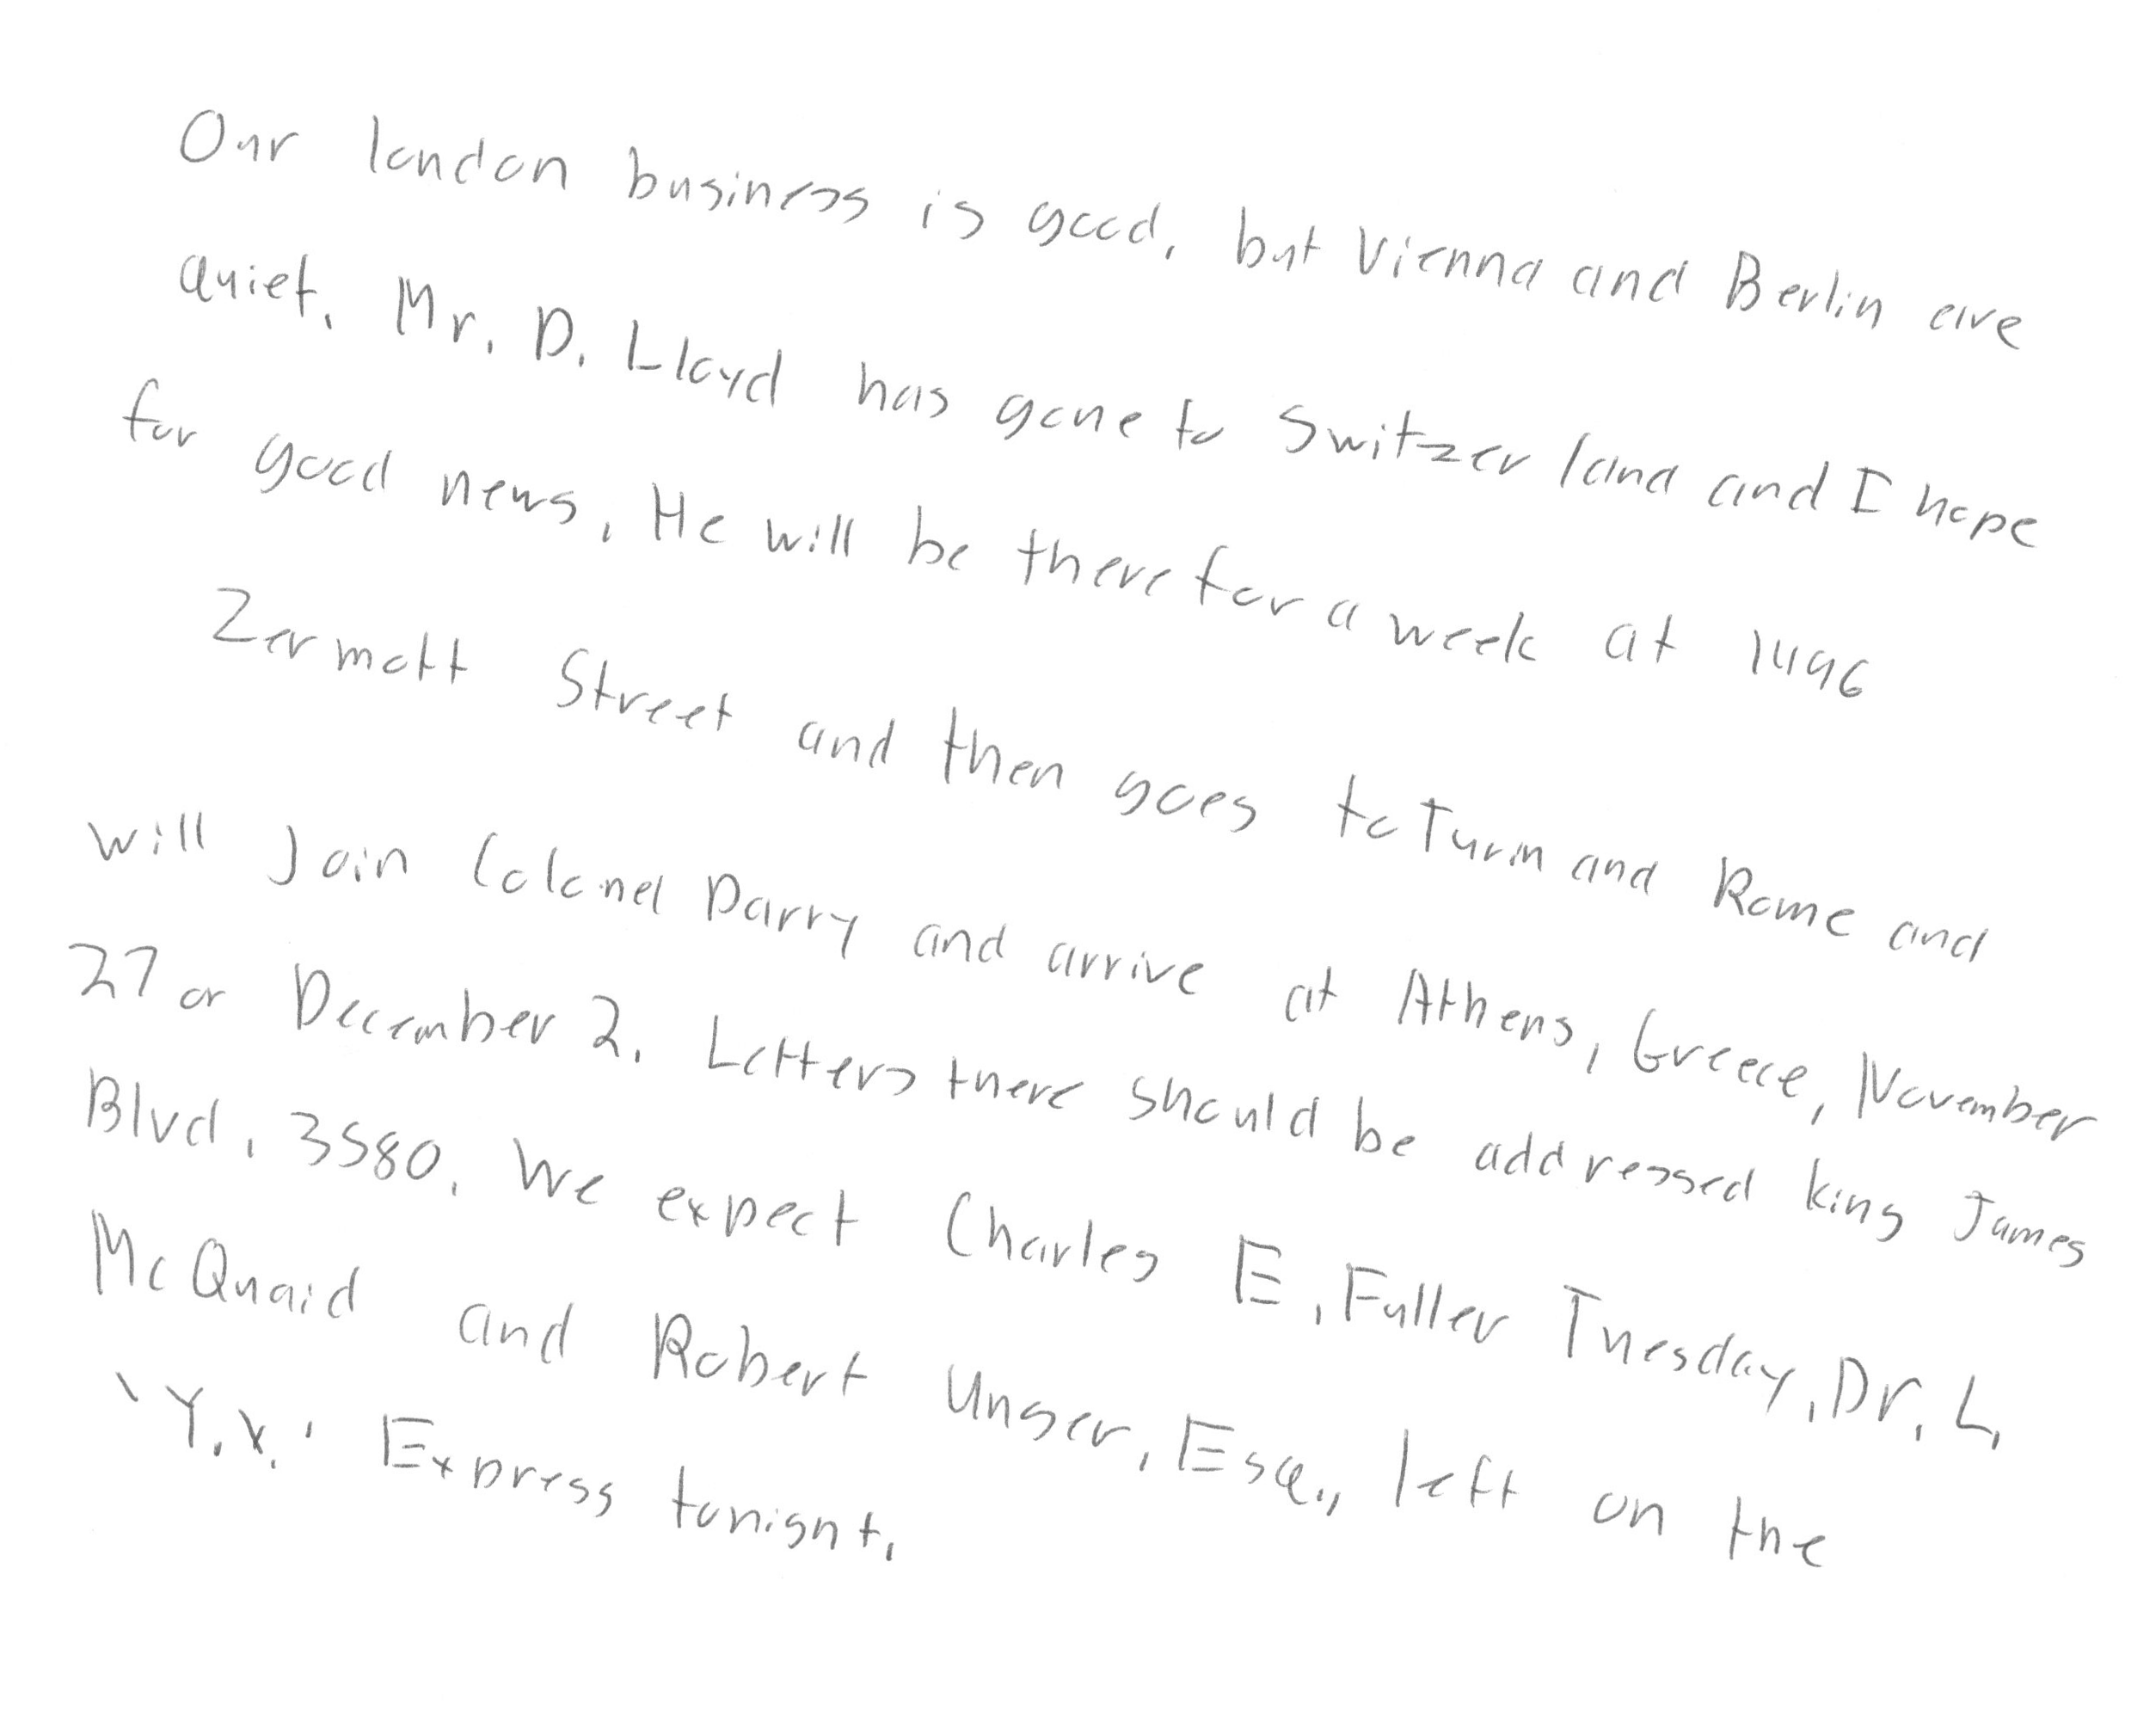 Our london business is good, but Vienna and Berlin are
quiet. Mr. D. Lloyd has gone to Switzerland and I hope
for good news. He will be there for a week at 1496
Zermott Street and then goes to Turin and Rome and
will Join Colonel Parry and arrive at Athens, Greece, November
27 or December 2. Letters there should be addressed king James
Blvd. 3580. We expect Charles E. Fuller Tuesday. Dr. L.
McQuaid and Robert Unger, Esq., left on the
'Y.X.' Express tonight.